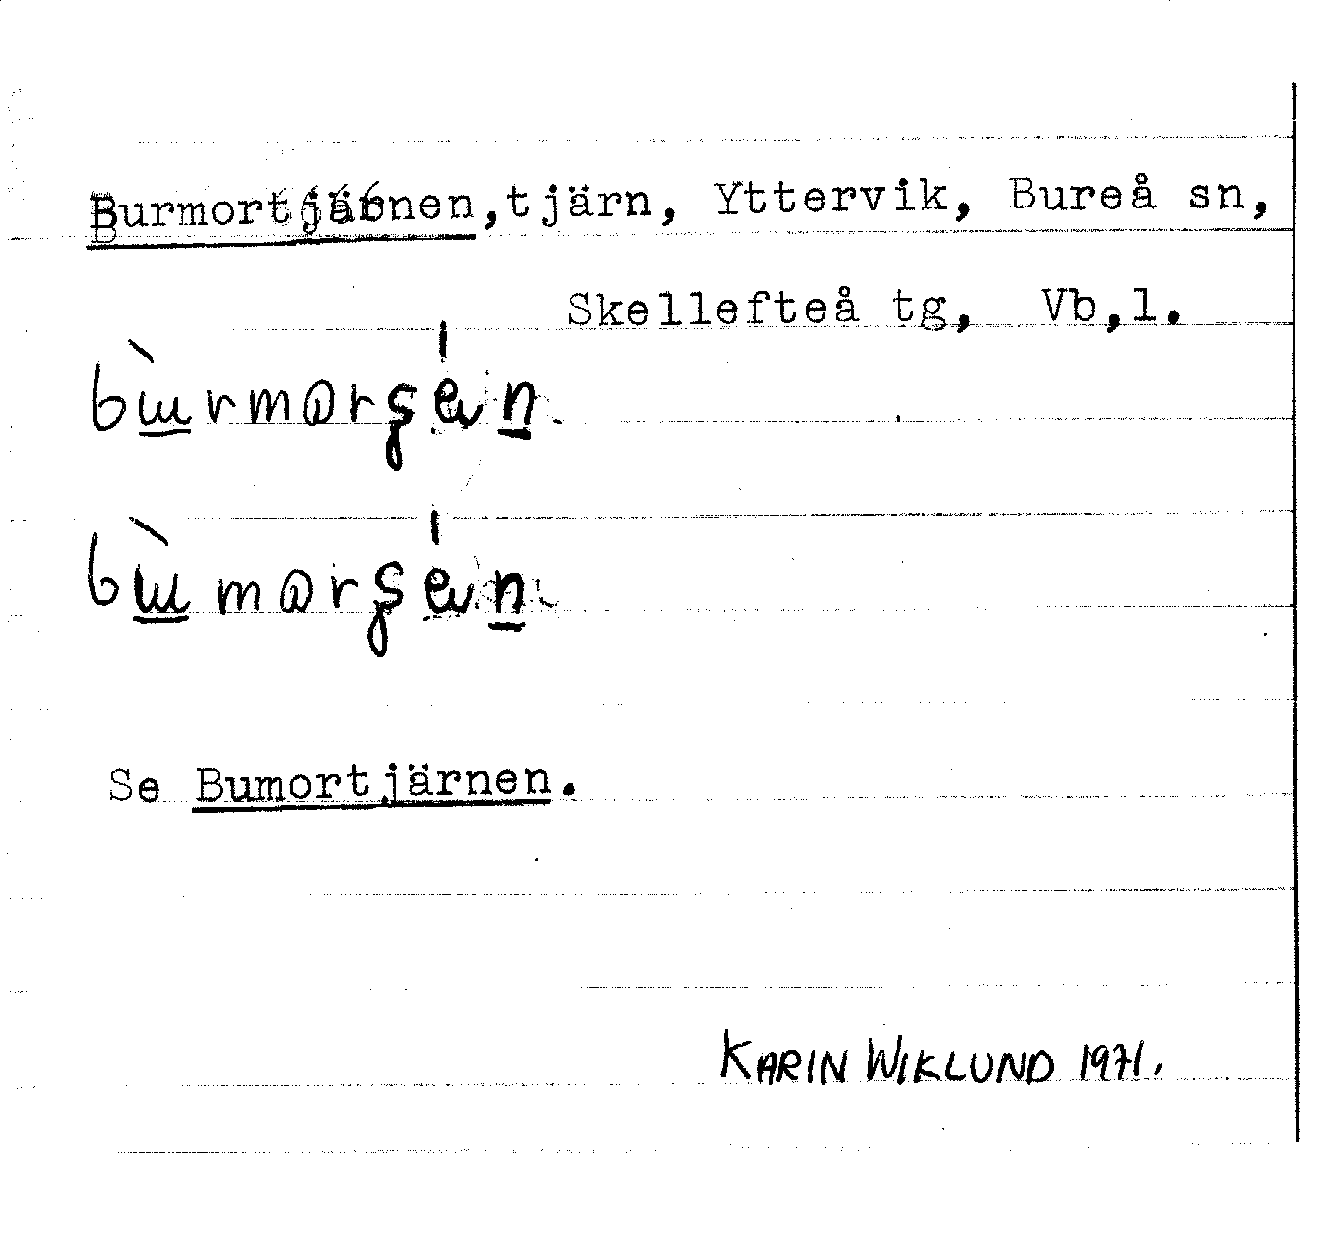 Burmortjärnen,tjärn, Yttervik, Bureå sn,
Skellefteå tg, Vb,l.
Se Bumortjärnen.
KARIN WIKLUND 1971.